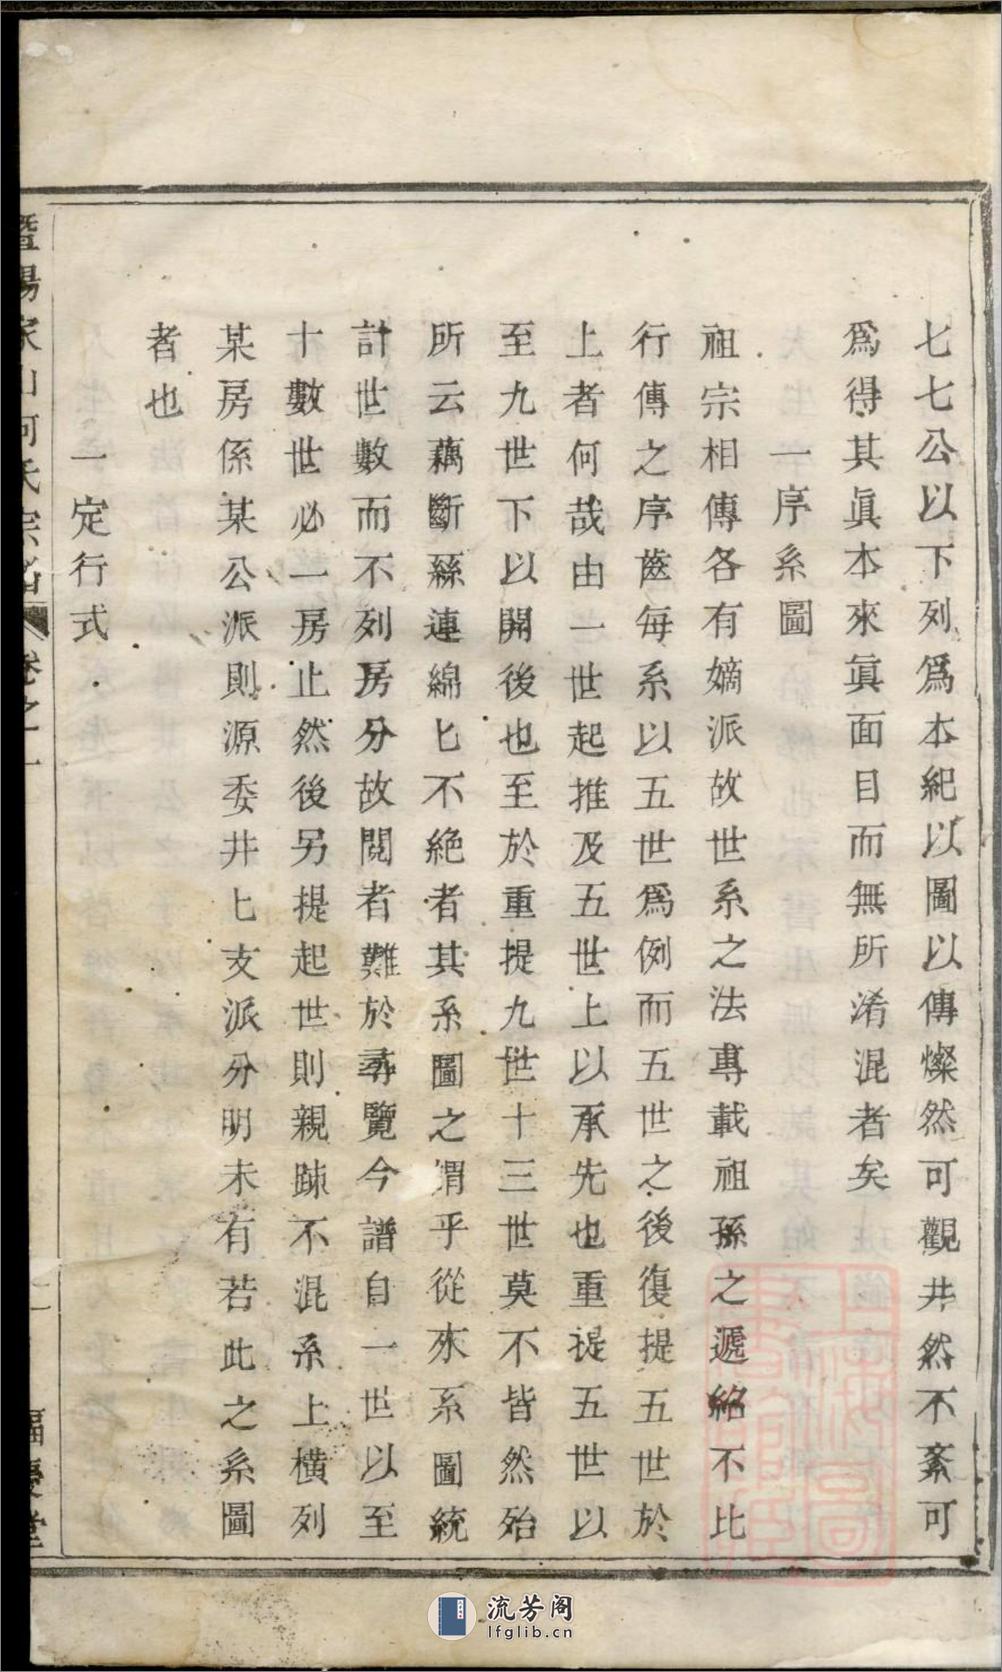 七七公以下列爲本紀以圖以傳燦然可觀井然不紊可
爲得其眞本來眞面目而無所淆混者矣
一序系圖
祖宗相傳各有嫡派故世系之法專載祖孫之遞紹不比
行傳之序齒每系以五世爲例而五世之後復提五世於
上者何哉由一世起推及五世上以承先也重提五世以
至九世下以開後也至於重提九世十三世莫不皆然殆
所云藕斷絲連綿匕不絕者其系圖之謂乎從來系圖統
計世數而不列房分故閱者難於尋覽今譜自一世以至
十數世必一房止然後另提起世則親疎不混系上橫列
某房係某公派則源委井匕支派分明未有若此之系圖
者也
一定行式
暨陽家山何氏宗譜 卷之一
一 福慶堂
上海圖書館藏
流芳阁
lfglib.cn